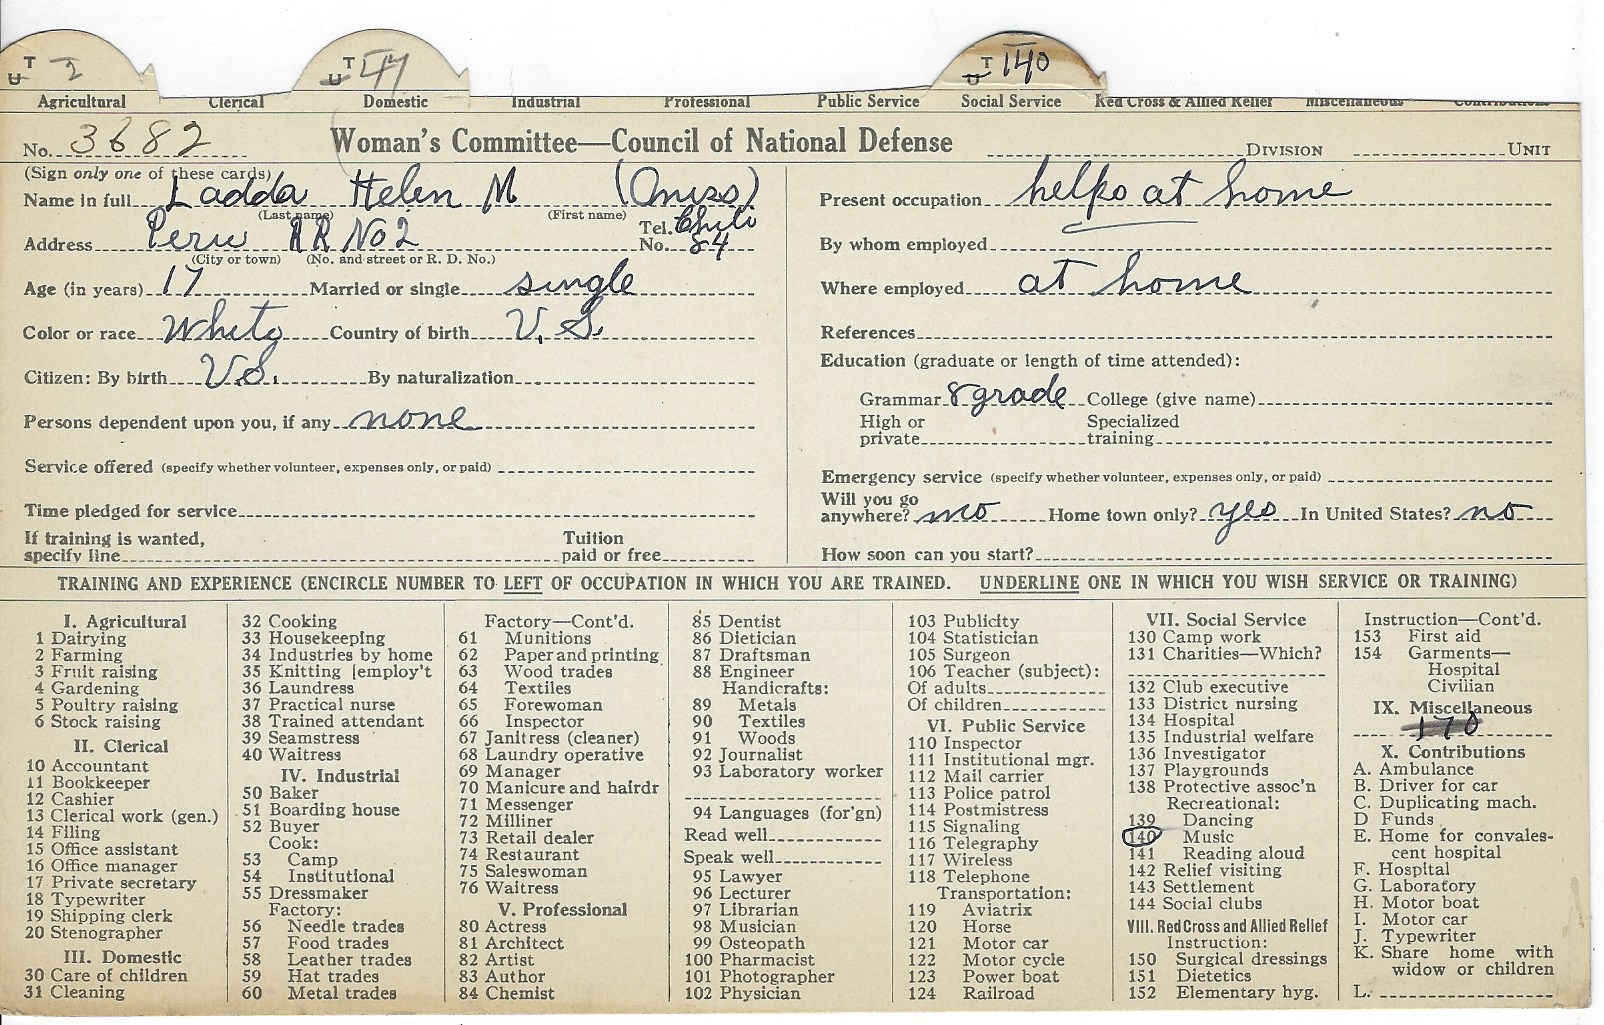 T U 2
T U 47
T U 140
Agricultural Clerical Domestic Industrial Professional Public Service Social Service Red Cross & Allied Relief Miscellaneous Contributions
No. 3682 Woman's Committee—Council of National Defense DIVISION UNIT
(Sign only one of these cards)
Name in full Ladda Helen M (Miss)
(Last name) (First name)
Address Peru RR No 2 Tel. No. Chili 84
(City or town) (No. and street or R. D. No.)
Age (in years) 17 Married or single single
Color or race White Country of birth U.S.
Citizen: By birth U.S. By naturalization
Persons dependent upon you, if any none
Service offered (specify whether volunteer, expenses only, or paid)
Time pledged for service
If training is wanted, specify line Tuition paid or free
Present occupation helps at home
By whom employed
Where employed at home
References
Education (graduate or length of time attended):
Grammar 8 grade College (give name)
High or private Specialized training
Emergency service (specify whether volunteer, expenses only, or paid)
Will you go anywhere? no Home town only? yes In United States? no
How soon can you start?
TRAINING AND EXPERIENCE (ENCIRCLE NUMBER TO LEFT OF OCCUPATION IN WHICH YOU ARE TRAINED. UNDERLINE ONE IN WHICH YOU WISH SERVICE OR TRAINING)
I. Agricultural
1 Dairying
2 Farming
3 Fruit raising
4 Gardening
5 Poultry raising
6 Stock raising
II. Clerical
10 Accountant
11 Bookkeeper
12 Cashier
13 Clerical work (gen.)
14 Filing
15 Office assistant
16 Office manager
17 Private secretary
18 Typewriter
19 Shipping clerk
20 Stenographer
III. Domestic
30 Care of children
31 Cleaning
32 Cooking
33 Housekeeping
34 Industries by home
35 Knitting [employ't
36 Laundress
37 Practical nurse
38 Trained attendant
39 Seamstress
40 Waitress
IV. Industrial
50 Baker
51 Boarding house
52 Buyer
Cook:
53 Camp
54 Institutional
55 Dressmaker
Factory:
56 Needle trades
57 Food trades
58 Leather trades
59 Hat trades
60 Metal trades
Factory—Cont'd.
61 Munitions
62 Paper and printing
63 Wood trades
64 Textiles
65 Forewoman
66 Inspector
67 Janitress (cleaner)
68 Laundry operative
69 Manager
70 Manicure and hairdr
71 Messenger
72 Milliner
73 Retail dealer
74 Restaurant
75 Saleswoman
76 Waitress
V. Professional
80 Actress
81 Architect
82 Artist
83 Author
84 Chemist
85 Dentist
86 Dietician
87 Draftsman
88 Engineer
Handicrafts:
89 Metals
90 Textiles
91 Woods
92 Journalist
93 Laboratory worker
94 Languages (for'gn)
Read well
Speak well
95 Lawyer
96 Lecturer
97 Librarian
98 Musician
99 Osteopath
100 Pharmacist
101 Photographer
102 Physician
103 Publicity
104 Statistician
105 Surgeon
106 Teacher (subject):
Of adults
Of children
VI. Public Service
110 Inspector
111 Institutional mgr.
112 Mail carrier
113 Police patrol
114 Postmistress
115 Signaling
116 Telegraphy
117 Wireless
118 Telephone
Transportation:
119 Aviatrix
120 Horse
121 Motor car
122 Motor cycle
123 Power boat
124 Railroad
VII. Social Service
130 Camp work
131 Charities—Which?
132 Club executive
133 District nursing
134 Hospital
135 Industrial welfare
136 Investigator
137 Playgrounds
138 Protective assoc'n
Recreational:
139 Dancing
140 Music
141 Reading aloud
142 Relief visiting
143 Settlement
144 Social clubs
VIII. Red Cross and Allied Relief
Instruction:
150 Surgical dressings
151 Dietetics
152 Elementary hyg.
Instruction—Cont'd.
153 First aid
154 Garments—
Hospital
Civilian
IX. Miscellaneous
170
X. Contributions
A. Ambulance
B. Driver for car
C. Duplicating mach.
D Funds
E. Home for convales-
cent hospital
F. Hospital
G. Laboratory
H. Motor boat
I. Motor car
J. Typewriter
K. Share home with
widow or children
L.